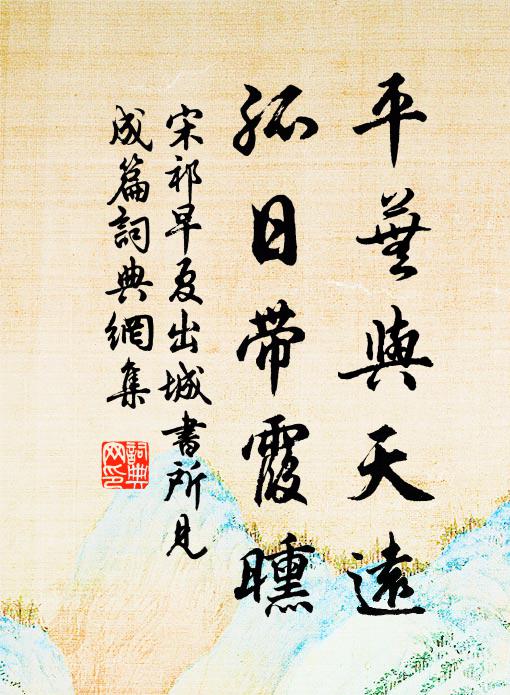 平蕪與天遠
孤日带霞曛
宋祁早夏出城書所見
成篇詞典網集
詞典网印